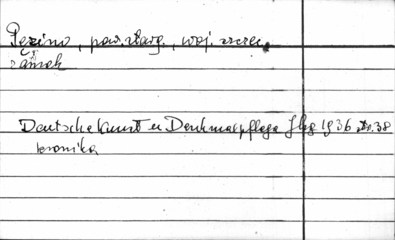 Pezino, pow. starg., woj. szczec.
zamek
Deutsche Kunst u Denkmalpflege Jhg 1936 str. 38
kronika